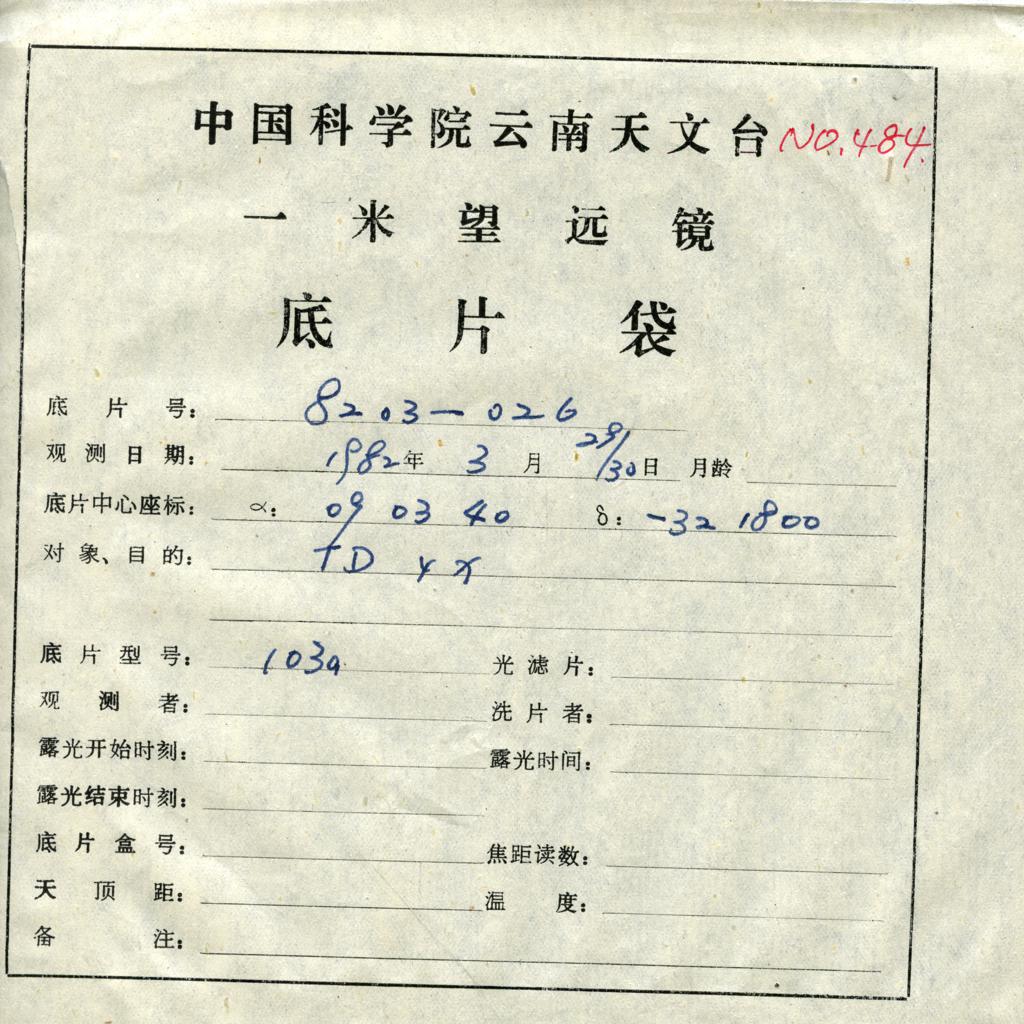 中国科学院云南天文台 NO.484.
一米望远镜
底片袋
底片号: 8203-026
观测日期: 1982年 3月 29/30日 月龄
底片中心座标: α: 09 03 40 δ: -32 18 00
对象、目的: TD 4X
底片型号: 103a 光滤片:
观测者: 洗片者:
露光开始时刻: 露光时间:
露光结束时刻:
底片盒号: 焦距读数:
天顶距: 温度:
备注: